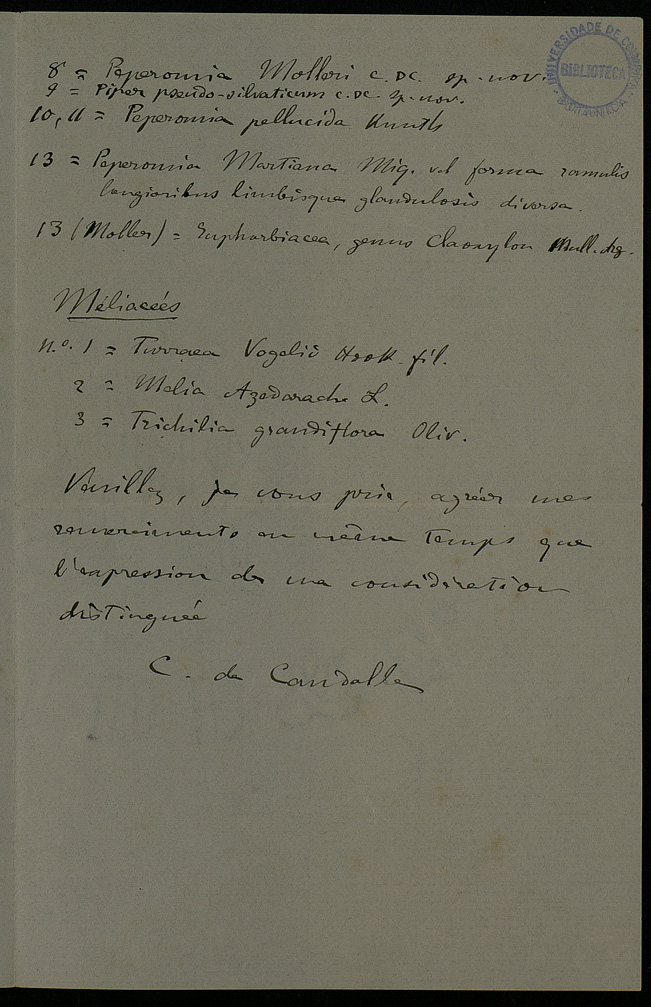 8 = Peperomia Molleri C. DC. sp. nov.
9 = Piper pseudo-silvaticum C. DC. sp. nov.
10, 11 = Peperomia pellucida Kunth
13 = Peperomia Martiana Miq. vel forma ramulis
longioribus limbisque glandulosis diversa.
13 (Moller) = Euphorbiacea, genus Claoxylon Mull. Arg.
Méliacées
N.º 1 = Turraea Vogelii Hook. fil.
2 = Melia Azedarach L.
3 = Trichilia grandiflora Oliv.
Veuillez, je vous prie, agréer mes
remerciments en même temps que
l'expression de ma considération
distinguée
C. de Candolle
UNIVERSIDADE DE COIMBRA
BIBLIOTECA
BOTANICA